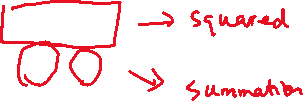 squared
summation